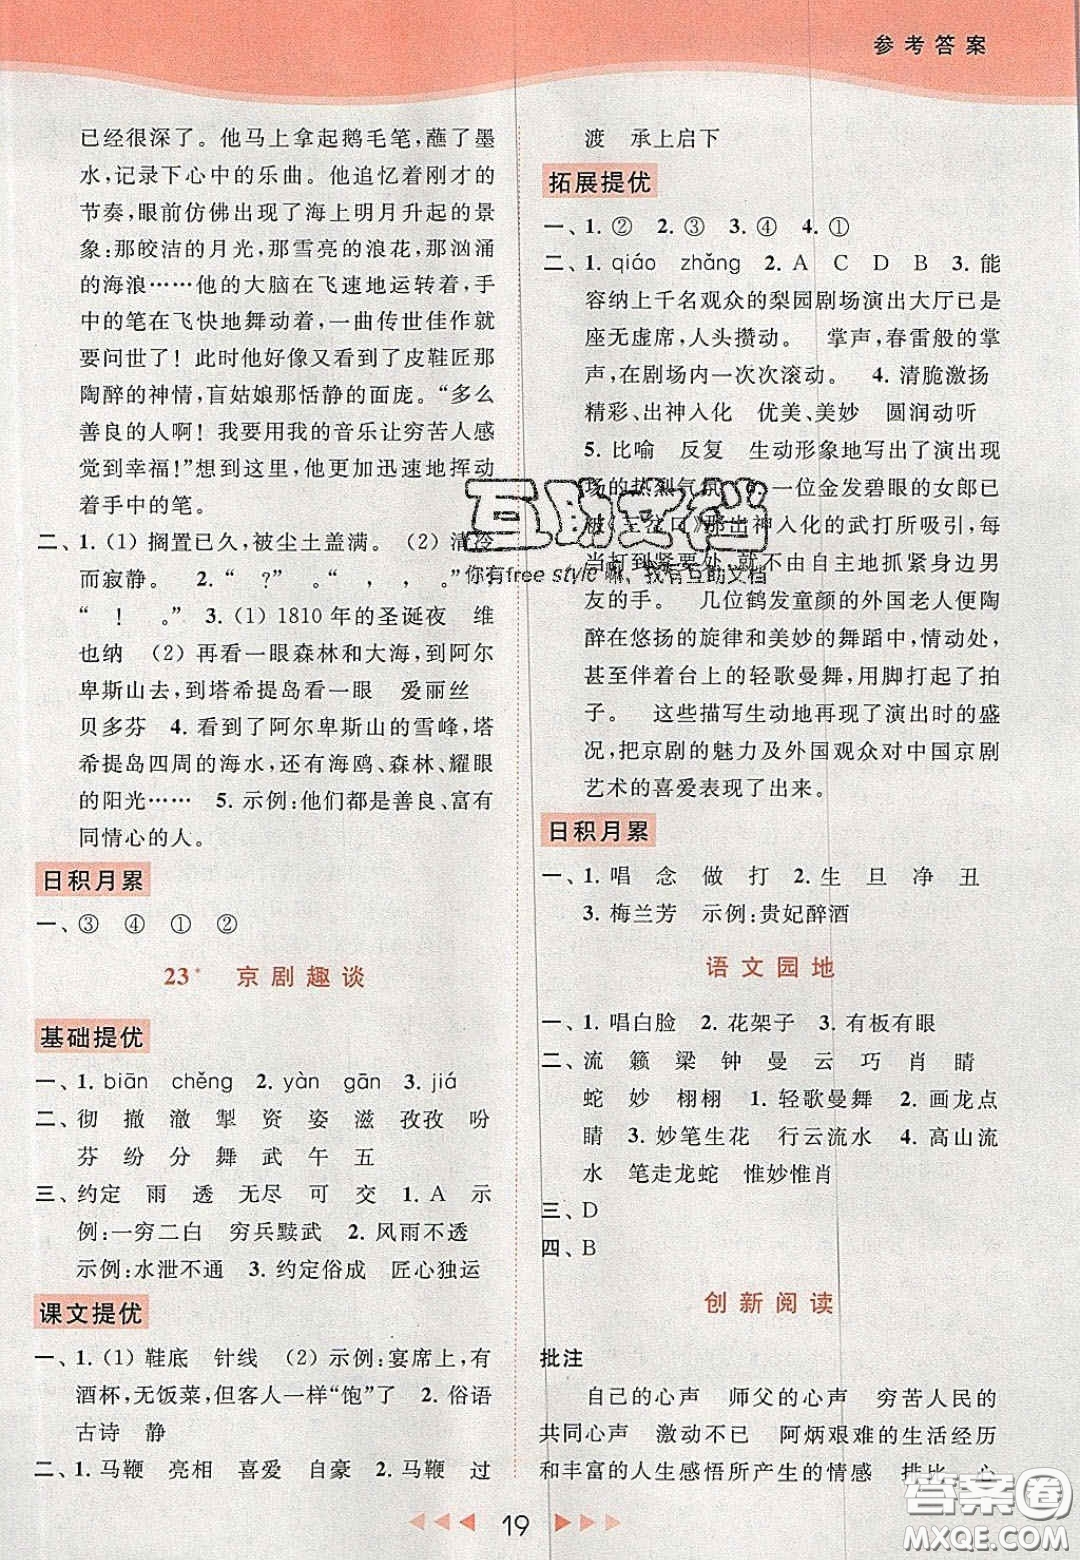 参考答案
已经很深了。他马上拿起鹅毛笔,蘸了墨
水,记录下心中的乐曲。他追忆着刚才的
节奏,眼前仿佛出现了海上明月升起的景
象:那皎洁的月光,那雪亮的浪花,那汹涌
的海浪……他的大脑在飞速地运转着,手
中的笔在飞快地舞动着,一曲传世佳作就
要问世了！此时他好像又看到了皮鞋匠那
陶醉的神情,盲姑娘那恬静的面庞。“多么
善良的人啊！我要用我的音乐让穷苦人感
觉到幸福！”想到这里,他更加迅速地挥动
着手中的笔。
二、1.(1) 搁置已久,被尘土盖满。 (2) 清冷
而寂静。 2.“ ?” 。“ , , 。”
“ ！ 。” 3.(1) 1810 年的圣诞夜 维
也纳 (2) 再看一眼森林和大海,到阿尔
卑斯山去,到塔希提岛看一眼 爱丽丝
贝多芬 4. 看到了阿尔卑斯山的雪峰,塔
希提岛四周的海水,还有海鸥、森林、耀眼
的阳光…… 5. 示例:他们都是善良、富有
同情心的人。
日积月累
一、③ ④ ① ②
23* 京剧趣谈
基础提优
一、1. biān chěng 2. yàn gān 3. jiá
二、彻 撤 澈 掣 资 姿 滋 孜孜 吩
芬 纷 分 舞 武 午 五
三、约定 雨 透 无尽 可 交 1. A 示
例:一穷二白 穷兵黩武 2. 风雨不透
示例:水泄不通 3. 约定俗成 匠心独运
课文提优
一、1.(1) 鞋底 针线 (2) 示例:宴席上,有
酒杯,无饭菜,但客人一样“饱”了 2. 俗语
古诗 静
二、1. 马鞭 亮相 喜爱 自豪 2. 马鞭 过
渡 承上启下
拓展提优
一、1. ② 2. ③ 3. ④ 4. ①
二、1. qiáo zhǎng 2. A C D B 3. 能
容纳上千名观众的梨园剧场演出大厅已是
座无虚席,人头攒动。 掌声,春雷般的掌
声,在剧场内一次次滚动。 4. 清脆激扬
精彩、出神入化 优美、美妙 圆润动听
5. 比喻 反复 生动形象地写出了演出现
场的热烈气氛 6. 一位金发碧眼的女郎已
被《三岔口》那出神入化的武打所吸引,每
当打到紧要处,就不由自主地抓紧身边男
友的手。 几位鹤发童颜的外国老人便陶
醉在悠扬的旋律和美妙的舞蹈中,情动处,
甚至伴着台上的轻歌曼舞,用手打起了拍
子。 这些描写生动地再现了演出时的盛
况,把京剧的魅力及外国观众对中国京剧
艺术的喜爱表现了出来。
日积月累
一、1. 唱 念 做 打 2. 生 旦 净 丑
3. 梅兰芳 示例:贵妃醉酒
语文园地
一、1. 唱白脸 2. 花架子 3. 有板有眼
二、流 籁 梁 钟 曼 云 巧 肖 睛
蛇 妙 栩栩 1. 轻歌曼舞 2. 画龙点
睛 3. 妙笔生花 行云流水 4. 高山流
水 笔走龙蛇 惟妙惟肖
三、D
四、B
创新阅读
批注
自己的心声 师父的心声 穷苦人民的
共同心声 激动不已 阿炳艰难的生活经历
和丰富的人生感悟所产生的情感 排比 心
互助文档
你有free style嘛、我有互助文档
19
答案圈
MXQE.COM